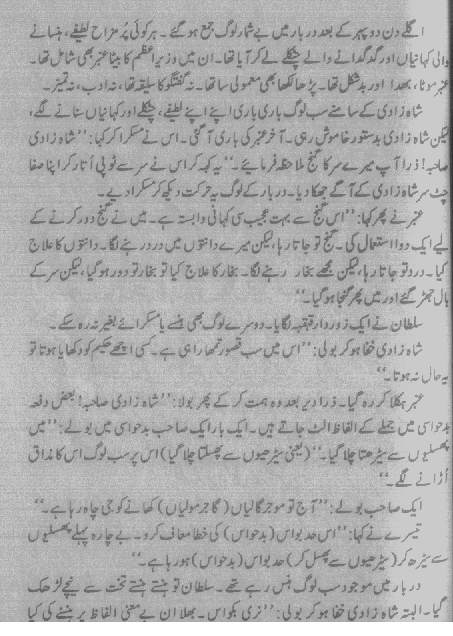 اگلے دن دوپہر کے بعد دربار میں بے شمار لوگ جمع ہو گئے۔ ہر کوئی پُر مزاح لطیفے، ہنسانے
والی کہانیاں اور گدگدانے والے چٹکلے لے کر آیا تھا۔ ان میں وزیراعظم کا بیٹا عنبر بھی شامل تھا۔
عنبر موٹا، بھدا اور بدشکل تھا۔ پڑھا لکھا بھی معمولی سا تھا۔ نہ گفتگو کا سلیقہ تھا، نہ ادب، نہ تمیز۔
شاہ زادی کے سامنے سب لوگ باری باری اپنے اپنے لطیفے، چٹکلے اور کہانیاں سنانے لگے،
لیکن شاہ زادی بدستور خاموش رہی۔ آخر عنبر کی باری آ گئی۔ اس نے مسکرا کر کہا: ’’شاہ زادی
صاحبہ! ذرا آپ میرے سر کا گنج ملاحظہ فرمائیے۔‘‘ یہ کہہ کر اس نے سر سے ٹوپی اُتار کر اپنا صفا
چٹ سر شاہ زادی کے آگے جھکا دیا۔ دربار کے لوگ یہ حرکت دیکھ کر مسکرا دیے۔
عنبر نے پھر کہا: ’’اس گنج سے بہت عجیب سی کہانی وابستہ ہے۔ میں نے گنج دور کرنے کے
لیے ایک دوا استعمال کی۔ گنج تو جاتا رہا، لیکن میرے دانتوں میں درد رہنے لگا۔ دانتوں کا علاج
کیا۔ درد تو جاتا رہا، لیکن مجھے بخار رہنے لگا۔ بخار کا علاج کیا تو بخار تو دور ہو گیا، لیکن سر کے
بال جھڑ گئے اور میں پھر گنجا ہو گیا۔‘‘
سلطان نے ایک زوردار قہقہہ لگایا۔ دوسرے لوگ بھی ہنسے یا مسکرائے بغیر نہ رہ سکے۔
شاہ زادی خفا ہو کر بولی: ’’اس میں سب قصور تمھارا ہی ہے۔ کسی اچھے حکیم کو دکھایا ہوتا تو
یہ حال نہ ہوتا۔‘‘
عنبر ہکلا کر رہ گیا۔ ذرا دیر بعد وہ ہمت کر کے پھر بولا: ’’شاہ زادی صاحبہ! بعض دفعہ
بدحواسی میں جملے کے الفاظ الٹ جاتے ہیں۔ ایک بار ایک صاحب بدحواسی میں بولے: ’’میں
پھسلیوں سے سیڑھتا چلا گیا۔‘‘ (یعنی سیڑھیوں سے پھسلتا چلا گیا) اس پر سب لوگ اس کا مذاق
اُڑانے لگے۔‘‘
ایک صاحب بولے: ’’آج تو موجر گالیاں (گاجر مولیاں) کھانے کو جی چاہ رہا ہے۔‘‘
تیسرے نے کہا: ’’اس حدبواس (بدحواس) کی خطا معاف کرو۔ بے چارہ پہلے پھسلیوں
سے سیڑھ کر (سیڑھیوں سے پھسل کر) حدبواس (بدحواس) ہو رہا ہے۔‘‘
دربار میں موجود سب لوگ ہنس رہے تھے۔ سلطان تو ہنستے ہنستے تخت سے نیچے لڑھک
گیا۔ البتہ شاہ زادی خفا ہو کر بولی: ’’نری بکواس۔ بھلا ان بے معنی الفاظ پر ہنسنے کی کیا